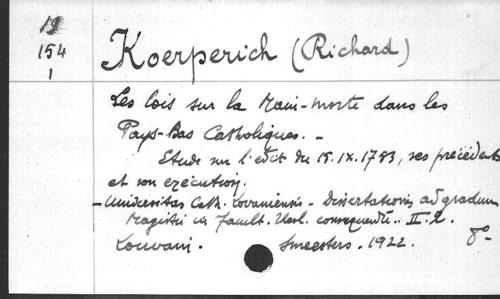 19
154
1
Koerperich (Richard)
Les lois sur la Main-morte dans les
Pays-Bas Catholiques. -
Etude sur l'édit du 15.IX.1783, ses précédents
et son exécution.
- Universitas Cath. Lovaniensis - Dissertationes ad gradum
Magistri in Facult. consequendum.. II. 2.
Louvain. Smeesters. 1922. 8°-